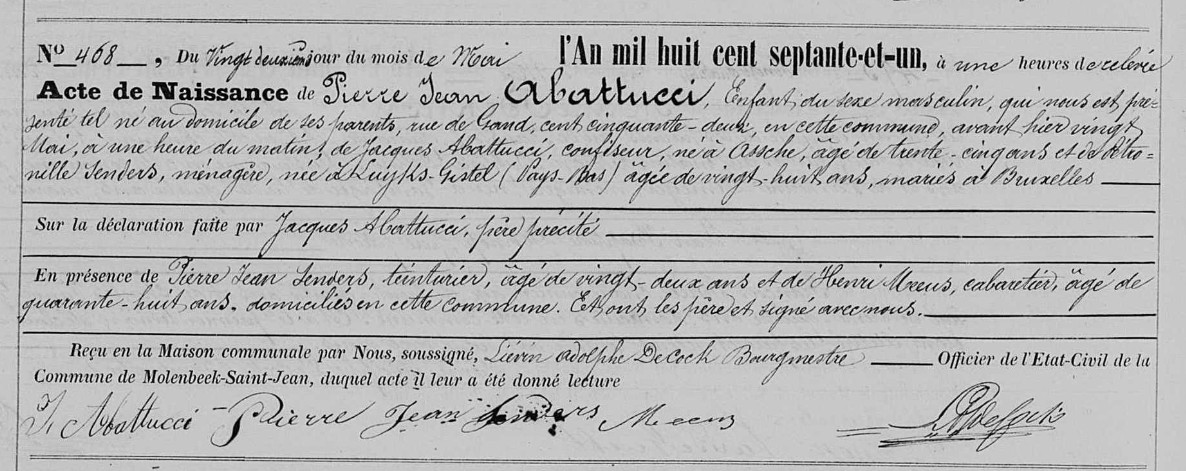 Nº 468, Du Vingt deuxième jour du mois de Mai l'An mil huit cent septante-et-un, à une heures de relevée
Acte de Naissance de Pierre Jean Abattucci, Enfant du sexe masculin, qui nous est pré-
senté tel né au domicile de ses parents, rue de Gand, cent cinquante-deux, en cette commune, avant hier vingt
Mai, à une heure du matin, de Jacques Abattucci, confiseur, né à Assche, âgé de trente-cinq ans et de Pétro-
nille Senders, ménagère, née à Luyks-Gistel (Pays-Bas) âgée de vingt-huit ans, mariés à Bruxelles
Sur la déclaration faite par Jacques Abattucci, père précité
En présence de Pierre Jean Senders, teinturier, âgé de vingt-deux ans et de Henri Meeus, cabaretier, âgé de
quarante-huit ans, domiciliés en cette commune. Et ont les père et signé avec nous.
Reçu en la Maison communale par Nous, soussigné, Liévin Adolphe De Cock Bourgmestre Officier de l'Etat-Civil de la
Commune de Molenbeek-Saint-Jean, duquel acte il leur a été donné lecture
J. Abattucci Pierre Jean Senders Meeus